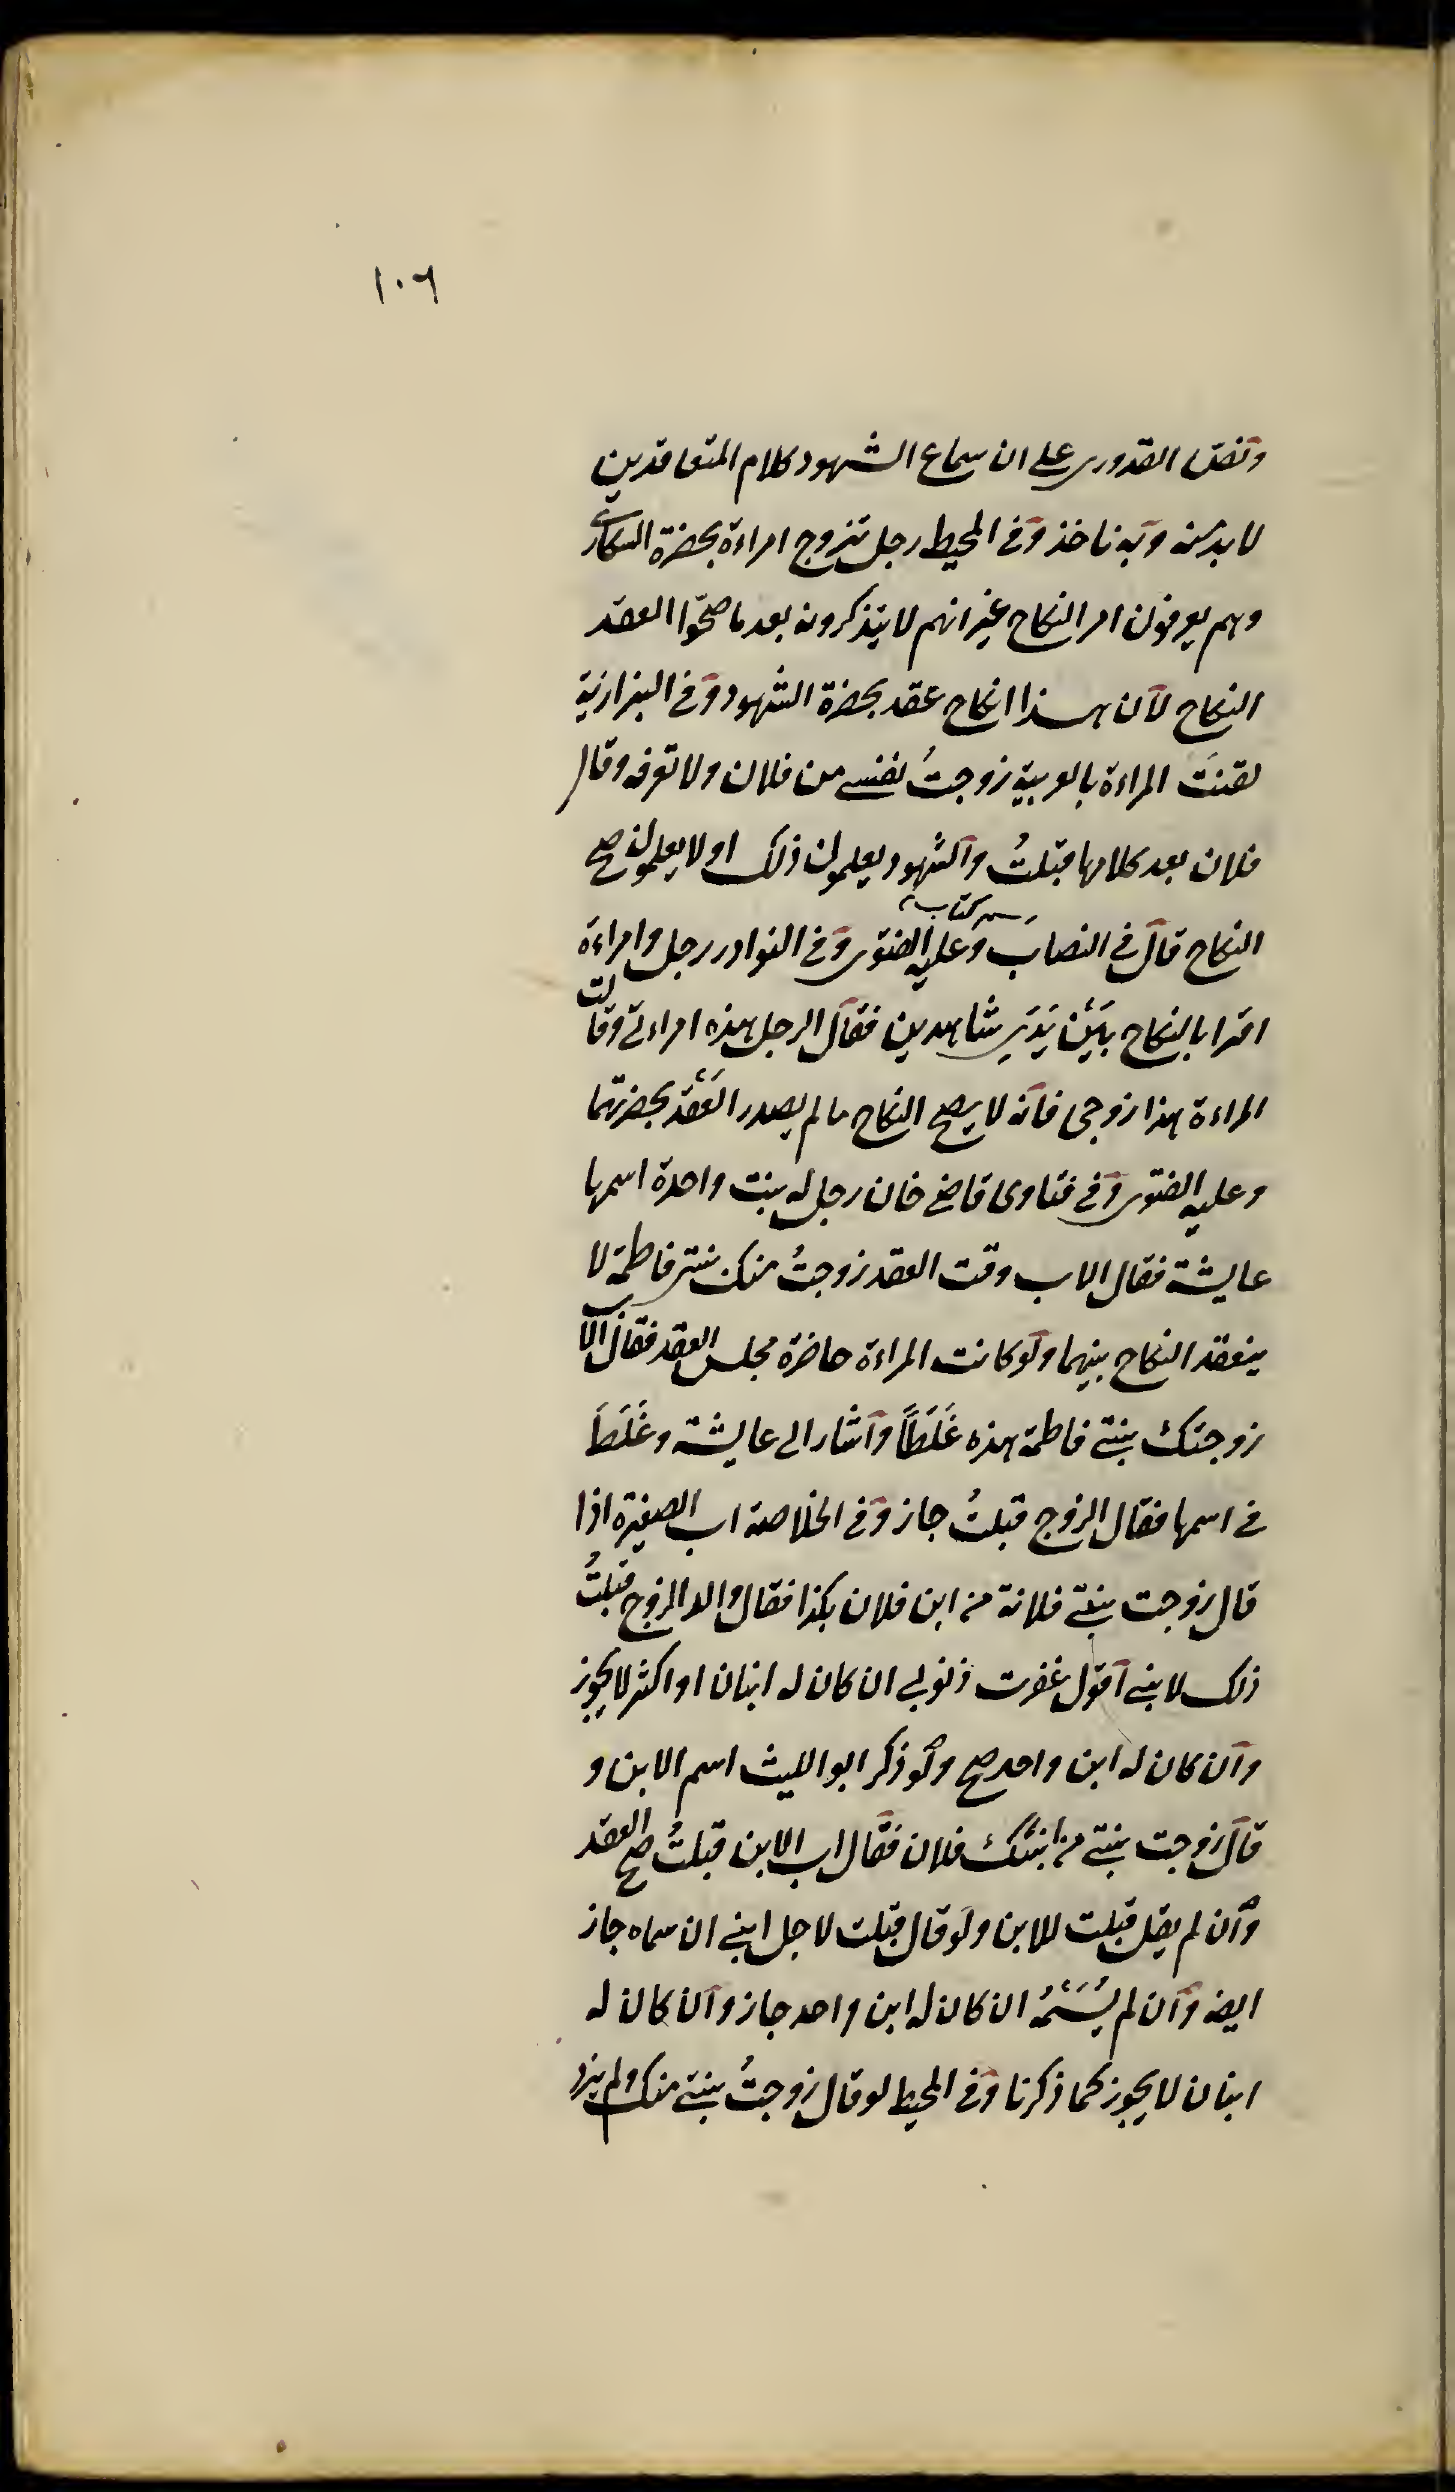 ١٠٦
ونص القدورى على ان سماع الشهود كلام المتعاقدين
لا بد منه وبه ناخذ وفى المحيط رجل تزوج امراءة بحضرة السكارى
وهم يعرفون امر النكاح غير انهم لا يتذكرونه بعد ما صحوا العقد
النكاح لان هذا انكاح عقد بحضرة الشهود وفى البزازية
لقنت المراءة بالعربية زوجتُ نفسى من فلان ولا تعرفه وقال
فلان بعد كلامها قبلتُ والشهود يعلمون ذلك او لا يعلمون صح
النكاح قال فى النصاب وعليه الفتوى وفى النوادر رجل وامراءة
اسم كتاب
اقرا بالنكاح بَيْنَ يَدَىِ شاهدين فقال الرجل هذه امراءتى وقالت
المراءة هذا زوجى فانه لا يصح النكاح ما لم يصدر العَقْد بحضرتهما
وعليه الفتوى وفى فتاوى قاضى خان رجل له بنت واحدة اسمها
عايشة فقال الاب وقت العقد زوجتُ منك بنتى فاطمة لا
ينعقد النكاح بينهما ولو كانت المراءة حاضرة مجلس العقد فقال الاب
زوجتك بنتى فاطمة هذه غَلَطًا واشار الى عايشة وغَلَطَ
فى اسمها فقال الزوج قبلتُ جاز وفى الخلاصة اب الصغيرة اذا
قال زوجت بنتى فلانة من ابن فلان بكذا فقال والد الزوج قبلتُ
ذلك لابنى اقول غفرت ذنوبى ان كان له ابنان او اكثر لا يجوز
وان كان له ابن واحد صح ولو ذكر ابو الليث اسم الابن و
قال زوجت بنتى من ابنك فلان فقال اب الابن قبلتُ صح العقد
وان لم يقل قبلت للابن ولو قال قبلت لاجل ابنى ان سماه جاز
ايضا وان لم يُسَمِّهُ ان كان له ابن واحد جاز وان كان له
ابنان لا يجوز كما ذكرنا وفى المحيط لو قال زوجتُ بنتى منك ولم يزد